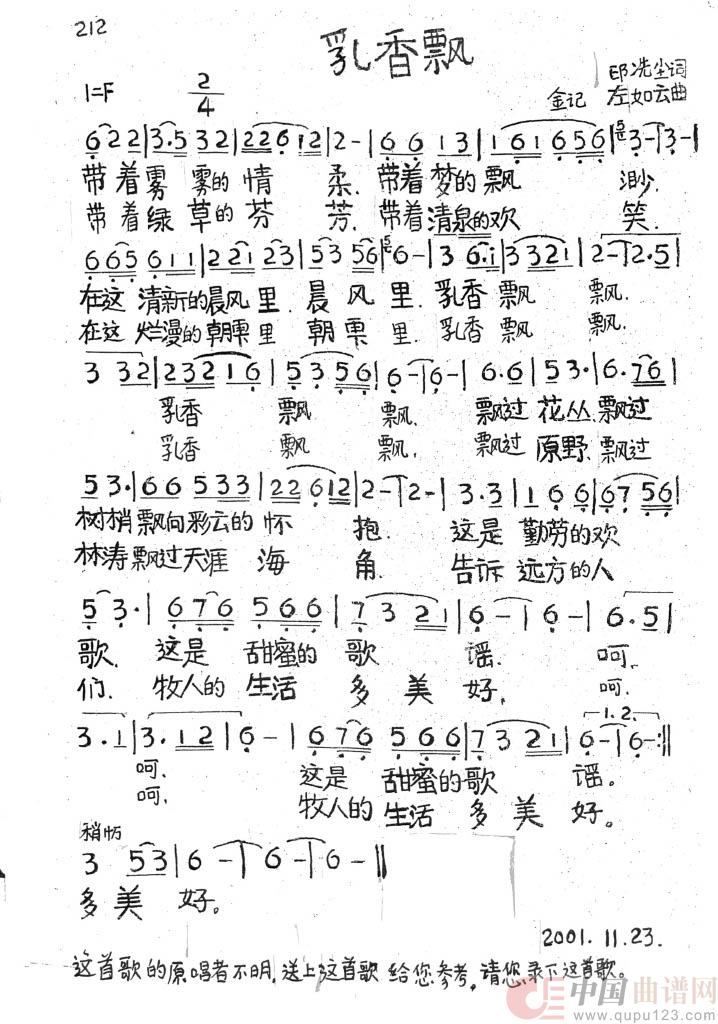 212
乳香飘
1=F 2/4
邸冼尘词
金记 左如云曲
6 2 2 | 3·5 3 2 | 2 2 6 1 2 | 2 - | 6 6 1 3 | 1 6 1 6 5 6 | 3 - | 3 - |
带着雾雾的情 柔. 带着梦的飘 渺.
带着绿草的芬 芳. 带着清泉的欢 笑.
6 6 5 6 1 1 | 2 2 1 2 3 | 5 3 5 6 | 6 - | 3 6·1 | 3 3 2 1 | 2 - | 2·5 |
在这 清新的晨风里. 晨风里. 乳香飘 飘.
在这 烂漫的朝霞里 朝霞里. 乳香飘 飘.
3 3 2 | 2 3 2 1 6 | 5 3 5 6 | 6 - | 6 - | 6·6 | 5 3· | 6·7 6 |
乳香 飘 飘. 飘过 花丛. 飘过
乳香 飘 飘. 飘过 原野. 飘过
5 3· | 6 6 5 3 3 | 2 2 6 1 2 | 2 - | 2 - | 3·3 | 1 6 6 | 6 7 5 6 |
树梢 飘向彩云的 怀 抱. 这是 勤劳的欢
林涛 飘过天涯 海 角. 告诉 远方的人
5 3· | 6 7 6 5 6 6 | 7 3 2 1 | 6 - | 6 - | 6·5 |
歌. 这是 甜蜜的 歌 谣. 呵.
们. 牧人的 生活 多 美 好. 呵.
1. 2.
3·1 | 3·1 2 | 6 - | 6 7 6 5 6 6 | 7 3 2 1 | 6 - | 6 - :||
呵. 这是 甜蜜的歌 谣。
呵. 牧人的 生活 多 美 好。
稍慢
3 5 3 | 6 - | 6 - | 6 - ||
多美 好。
2001.11.23.
这首歌的原唱者不明,送上这首歌 给您参考,请您录下这首歌。
中国曲谱网
www.qupu123.com